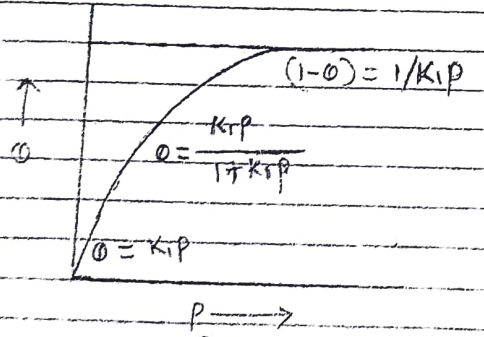 (1-θ) = 1/K₁P
θ = K₁P / 1+K₁P
θ
θ = K₁P
P →